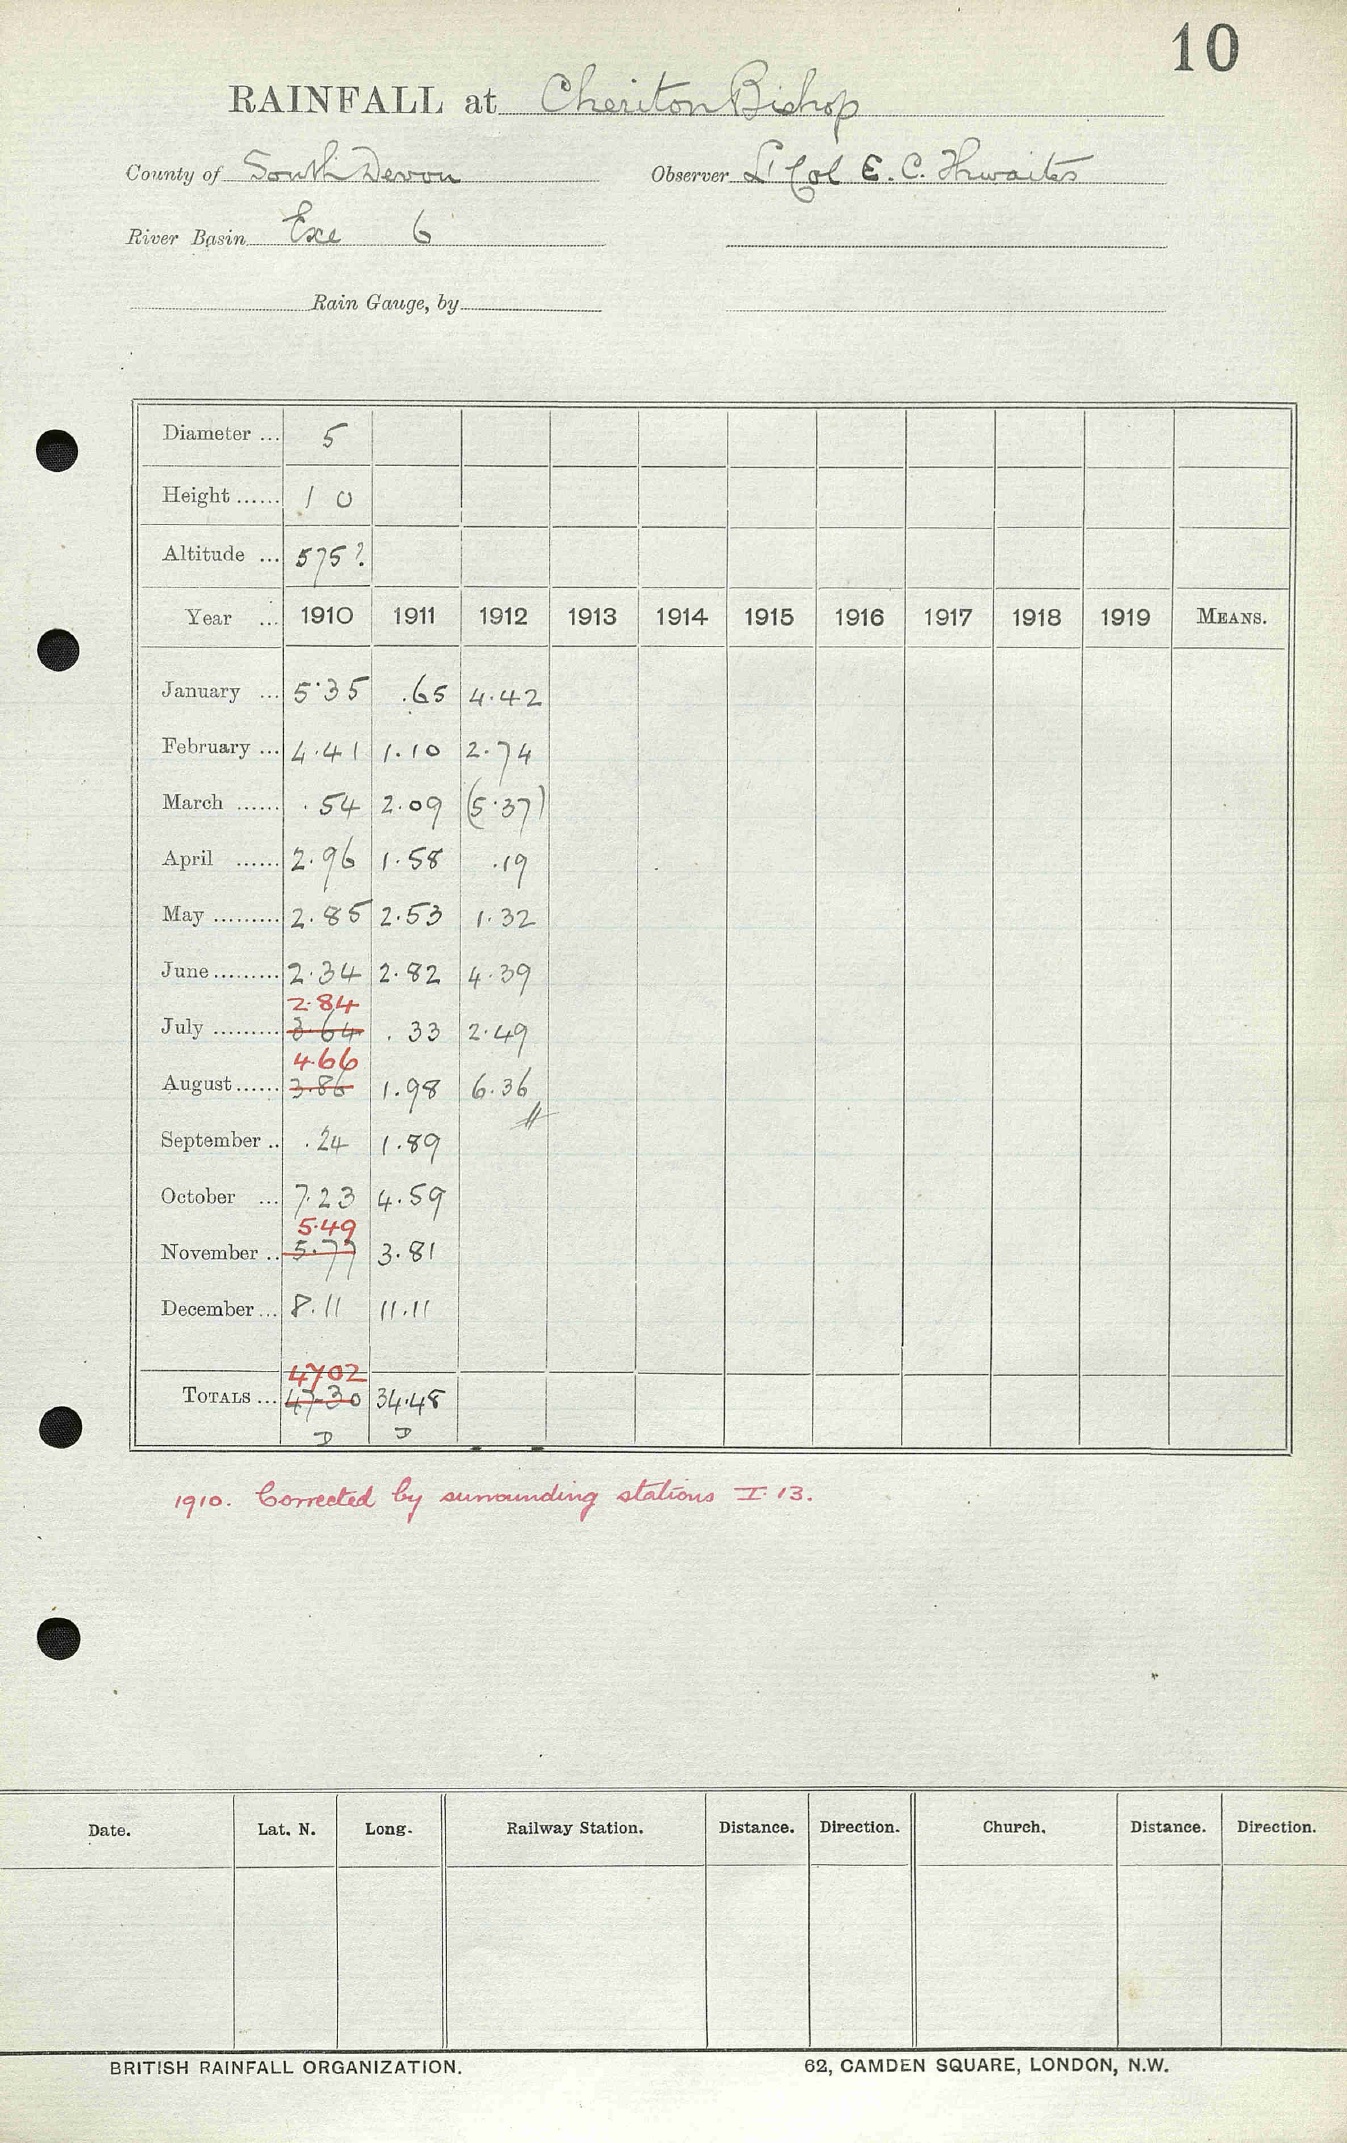 10
RAINFALL at Cheriton Bishop
County of South Devon Observer Lt Col E. C. Thwaites
River Basin Exe 6
Rain Gauge, by
Diameter ... 5
Height ...... 1 0
Altitude ... 575?
Year ... 1910 1911 1912 1913 1914 1915 1916 1917 1918 1919 MEANS.
January ... 5.35 .65 4.42
February ... 4.41 1.10 2.74
March ...... .54 2.09 (5.37)
April ...... 2.96 1.58 .19
May ......... 2.85 2.53 1.32
June ......... 2.34 2.82 4.39
2.84
July ......... 3.64 .33 2.49
4.66
August ...... 3.86 1.98 6.36
September .. .24 1.89
October ... 7.23 4.59
5.49
November .. 5.77 3.81
December ... 8.11 11.11
4702
TOTALS ... 47.30 34.48
D D
1910. Corrected by surrounding stations I. 13.
Date. Lat. N. Long. Railway Station. Distance. Direction. Church. Distance. Direction.
BRITISH RAINFALL ORGANIZATION. 62, CAMDEN SQUARE, LONDON, N.W.